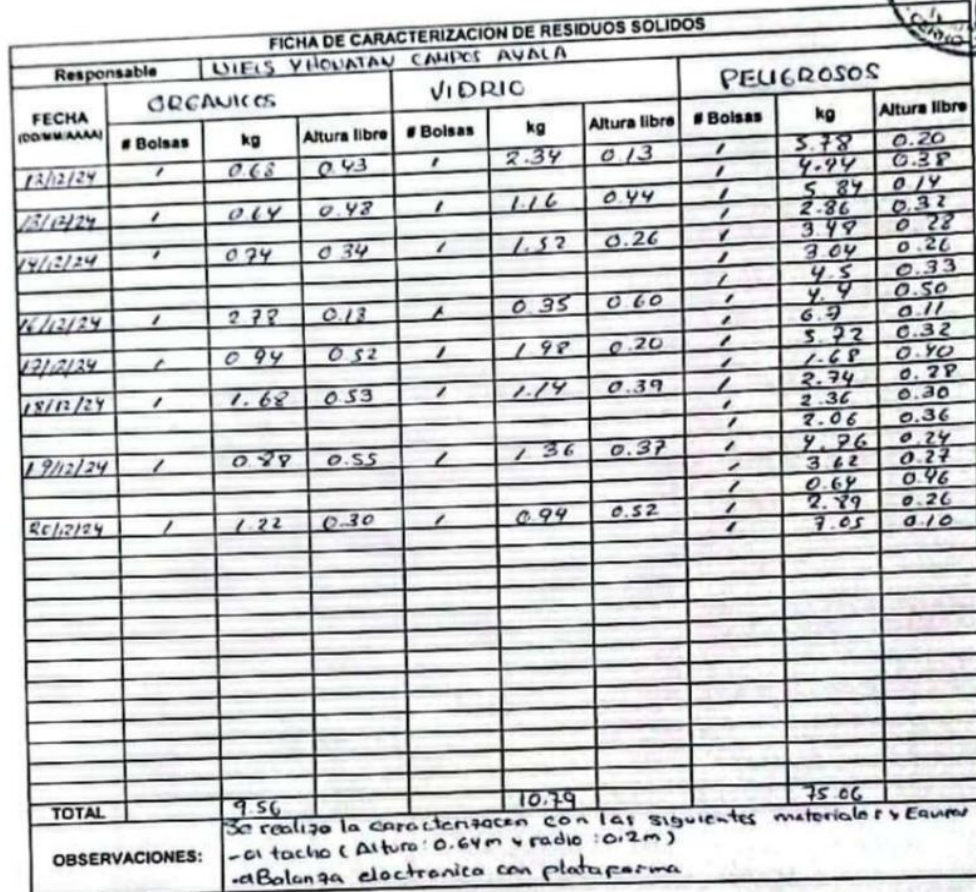 FICHA DE CARACTERIZACION DE RESIDUOS SOLIDOS
Responsable CAMPOS AYALA
FECHA (DD/MM/AAAA) ORGANICOS VIDRIO PELIGROSOS
# Bolsas kg Altura libre # Bolsas kg Altura libre # Bolsas kg Altura libre
1 5.78 0.20
12/12/24 1 0.68 0.43 1 2.34 0.13 1 4.94 0.38
1 5.84 0.14
13/12/24 1 0.64 0.48 1 1.16 0.44 1 2.86 0.32
1 3.48 0.28
14/12/24 1 0.74 0.34 1 1.52 0.26 1 3.04 0.26
1 4.5 0.33
1 4.4 0.50
16/12/24 1 2.78 0.13 1 0.35 0.60 1 6.7 0.11
1 5.72 0.32
17/12/24 1 0.94 0.52 1 1.98 0.20 1 1.68 0.40
1 2.74 0.28
18/12/24 1 1.68 0.53 1 1.14 0.39 1 2.36 0.30
1 2.06 0.36
1 4.76 0.24
19/12/24 1 0.88 0.55 1 1.36 0.37 1 3.62 0.27
1 0.64 0.46
1 2.89 0.26
20/12/24 1 1.22 0.30 1 0.94 0.52 1 7.05 0.10
TOTAL 9.56 10.79 75.06
OBSERVACIONES: Se realizo la caracterizacen con las siguientes materiales y
- tacho (Altura: 0.64m y radio: 0.2m)
- Balanza electronica con plataforma